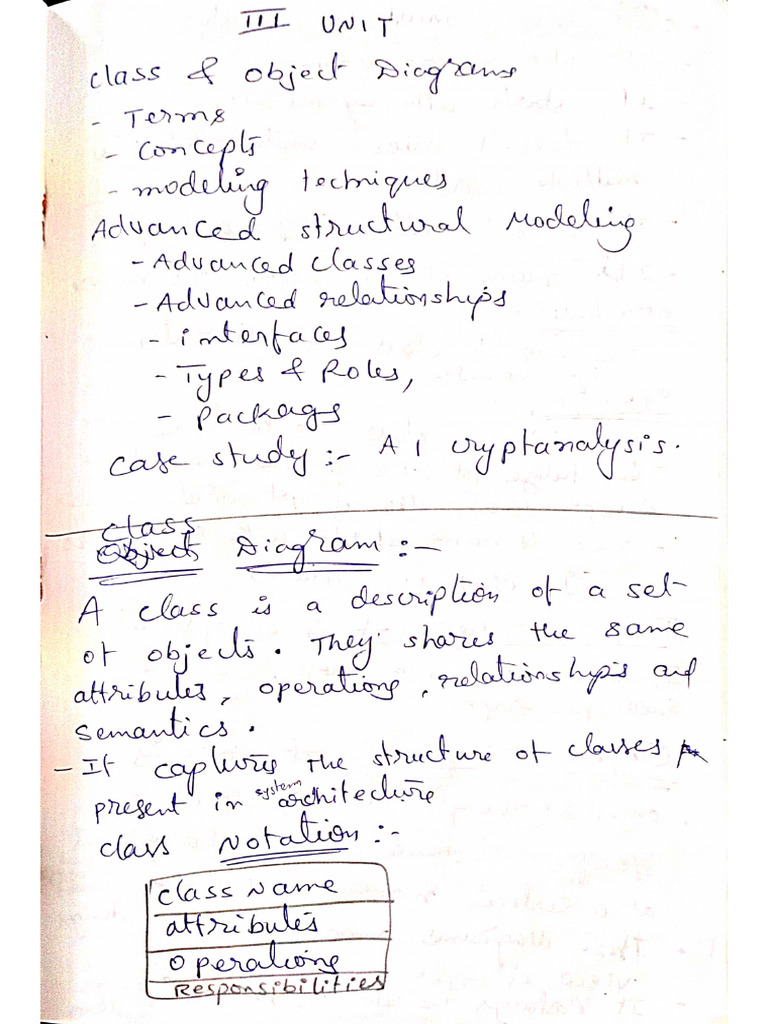 III UNIT
class & object Diagrams
- Terms
- Concepts
- modeling techniques
Advanced structural Modeling.
- Advanced classes
- Advanced relationships
- interfaces
- Types & Roles,
- packags
case study :- A I cryptanalysis.
class
Object Diagram :-
A class is a description of a set
of objects. They shares the same
attributes, operations, relationships and
semantics.
- It captures the structure of classes
present in system architecture
class Notation :-
class Name
attributes
operations
Responsibilities